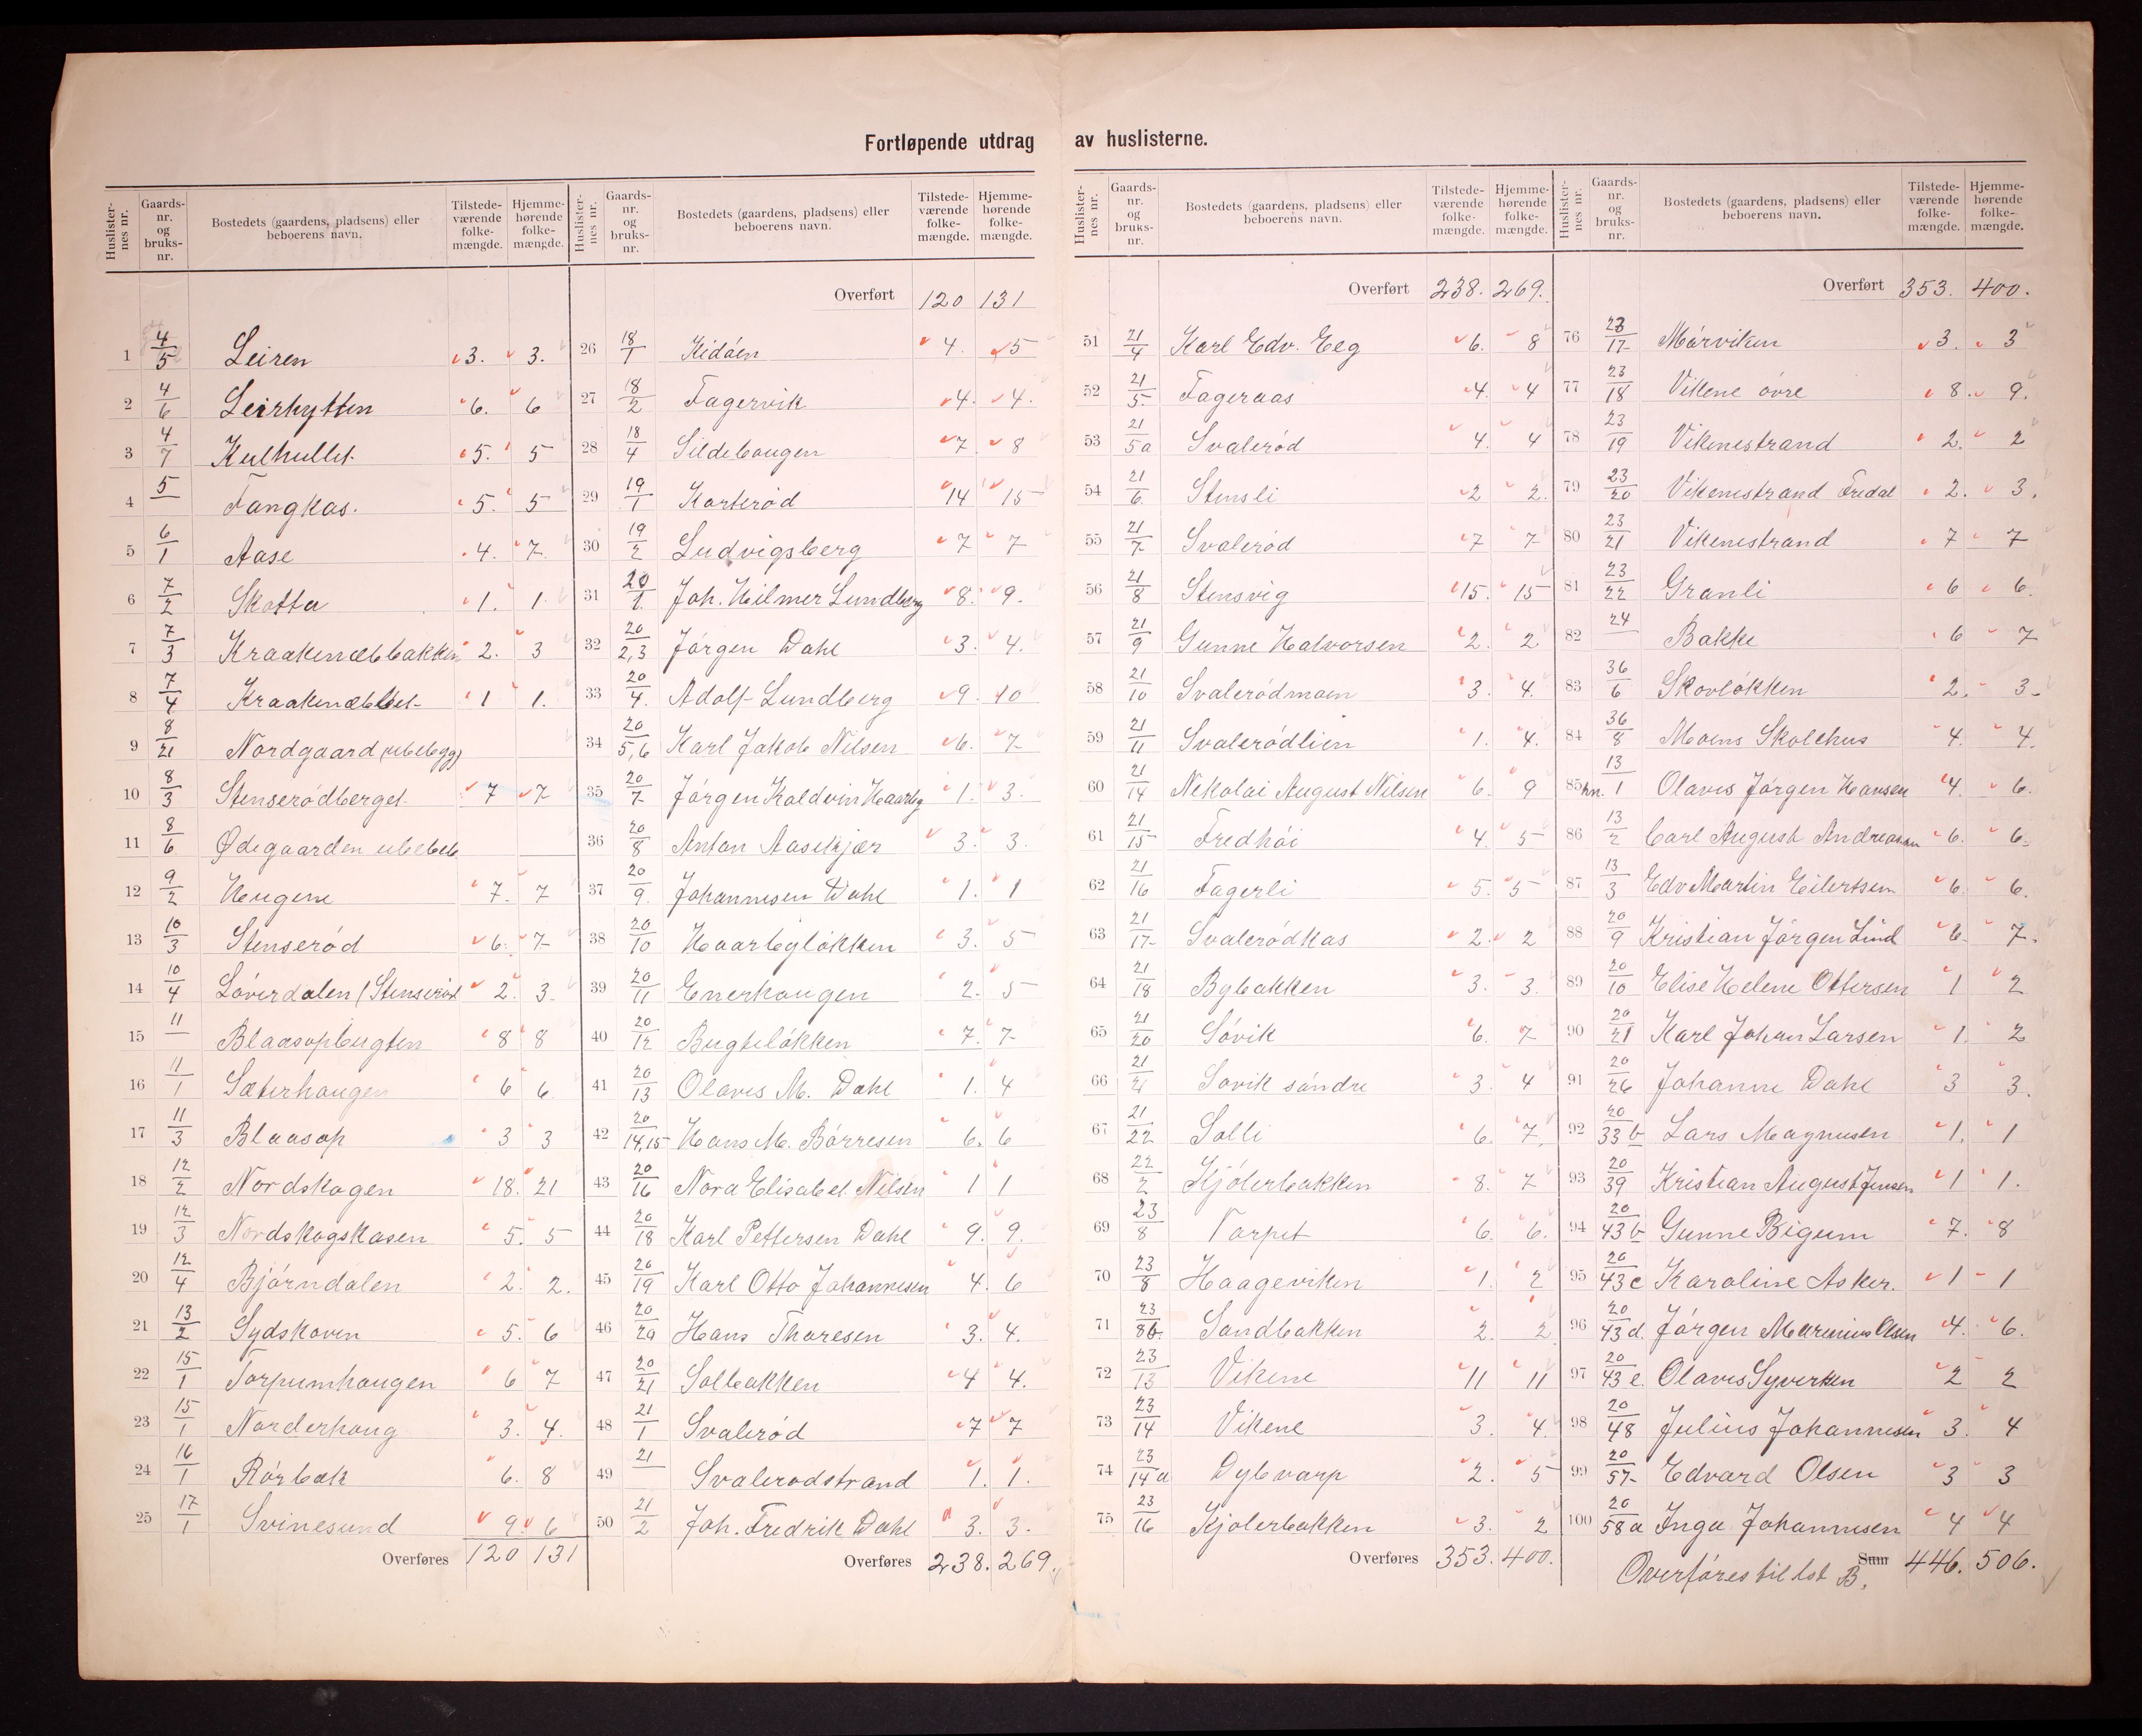 Fortløpende utdrag av huslisterne.
Huslister-nes nr. Gaards-nr. og bruks-nr. Bostedets (gaardens, pladsens) eller beboerens navn. Tilstede-værende folke-mængde. Hjemme-hørende folke-mængde.
1 4/5 Leiren 3. 3.
2 4/6 Leirhytten 6. 6
3 4/7 Kulhullet. 5. 5
4 5 Fangkas. 5. 5
5 6/1 Aase 4. 7.
6 7/2 Skotta 1. 1.
7 7/3 Kraakenæbbakken 2. 3
8 7/4 Kraakenæbbet 1 1.
9 8/21 Nordgaard (ubebygg)
10 8/3 Stenserødberget. 7 7
11 8/6 Ødegaarden ubebeb
12 9/2 Haugene 7. 7
13 10/3 Stenserød 6. 7
14 10/4 Løverdalen (Stenserød 2. 3.
15 11 Blaasopbugten 8 8
16 11/1 Sæterhaugen 6 6
17 11/3 Blaasop 3 3
18 12/2 Nordskogen 18. 21
19 12/3 Nordskogskasen 5. 5
20 12/4 Bjørndalen 2. 2.
21 13/2 Sydskoven 5. 6
22 15/1 Torpumhaugen 6 7
23 15/1 Norderhaug 3. 4.
24 16/1 Rørbæk 6. 8
25 17/1 Svinesund 9. 6
Overføres 120 131
Huslister-nes nr. Gaards-nr. og bruks-nr. Bostedets (gaardens, pladsens) eller beboerens navn. Tilstede-værende folke-mængde. Hjemme-hørende folke-mængde.
Overført 120 131
26 18/1 Kidøen 4. 5
27 18/2 Fagervik 4. 4.
28 18/4 Sildebaugen 7. 8
29 19/1 Korterød 14 15
30 19/2 Ludvigsberg 7 7
31 20/1. Joh. Hilmer Lundberg 8. 9.
32 20/2,3 Jørgen Dahl 3. 4.
33 20/4. Adolf Lundberg 9. 10
34 20/5,6 Karl Jakob Nilsen 6. 7
35 20/7 Jørgen Kaldvin Haarby 1. 3.
36 20/8 Anton Aasekjær 3. 3.
37 20/9. Johannesen Dahl 1. 1
38 20/10 Haarbyløkken 3. 5
39 20/11 Enerhaugen 2. 5
40 20/12 Bugteløkken 7. 7
41 20/13 Olavus M. Dahl 1. 4
42 20/14,15 Hans M. Børresen 6. 6
43 20/16 Nora Elisabet Nilsen 1 1
44 20/18 Karl Pettersen Dahl 9. 9.
45 20/19 Karl Otto Johannesen 4. 6
46 20/2a Hans Thoresen 3. 4.
47 20/21 Solbakken 4 4.
48 21/1 Svalerød 7 7
49 21 Svalerødstrand 1. 1.
50 21/2 Joh. Fredrik Dahl 3. 3.
Overføres 238. 269.
Huslister-nes nr. Gaards-nr. og bruks-nr. Bostedets (gaardens, pladsens) eller beboerens navn. Tilstede-værende folke-mængde. Hjemme-hørende folke-mængde.
Overført 238. 269.
51 21/4 Karl Edv. Eeg 6. 8
52 21/5. Fageraas 4. 4
53 21/5a Svalerød 4. 4
54 21/6. Stensli 2 2.
55 21/7 Svalerød 7 7
56 21/8 Stensvig 15. 15
57 21/9 Gunne Halvorsen 2. 2
58 21/10 Svalerødmoen 3. 4.
59 21/11 Svalerødlien 1. 4.
60 21/14 Nikolai August Nilsen 6. 9
61 21/15 Fredhøi 4. 5
62 21/16 Fagerli 5. 5
63 21/17 Svalerødkas 2. 2
64 21/18 Bybakken 3. 3.
65 21/20 Søvik 6. 7
66 21/21 Søvik søndre 3. 4
67 21/22 Solli 6. 7.
68 22/2 Kjølerbakken 8. 7
69 23/8 Torpet 6. 6.
70 23/8 Haageviken 1. 2
71 23/8b. Sandbakken 2. 2
72 23/13 Vikene 11 11
73 23/14 Vikene 3. 4.
74 23/14a Dybvarp 2. 5
75 23/16 Kjølerbakken 3. 2
Overføres 353. 400.
Huslister-nes nr. Gaards-nr. og bruks-nr. Bostedets (gaardens, pladsens) eller beboerens navn. Tilstede-værende folke-mængde. Hjemme-hørende folke-mængde.
Overført 353. 400.
76 23/17 Mørviken 3. 3
77 23/18 Vikene øvre 8. 9.
78 23/19 Vikenestrand 2. 2
79 23/20 Vikenestrand Fredal 2. 3.
80 23/21 Vikenestrand 7 7
81 23/22 Granli 6 6.
82 24 Bakke 6 7
83 36/6 Skovløkken 2. 3.
84 36/8 Moens Skolehus 4. 4.
85 hn. 13/1 Olavus Jørgen Hansen 4. 6.
86 13/2 Carl August Andreasen 6. 6.
87 13/3 Edv Martin Eilertsen 6. 6.
88 20/9 Kristian Jørgen Lund 6. 7.
89 20/10 Elise Helene Ottersen 1 2
90 20/21 Karl Johan Larsen 1. 2
91 20/26 Johanne Dahl 3 3.
92 20/33 b Lars Magnusen 1. 1
93 20/39 Kristian August Jensen 1 1.
94 20/43 b Gunne Bigum 7. 8
95 20/43 c Karoline Asker. 1 1
96 20/43 d. Jørgen Marinius Olsen 4. 6.
97 20/43 e. Olavus Syversen 2 2
98 20/48 Julius Johannesen 3. 4
99 20/57 Edvard Olsen 3 3
100 20/58 a Inga Johannesen 4 4
Sum 446. 506.
Overføres til lst B.